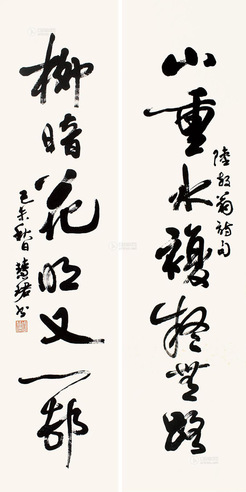 山重水複疑無路
陸放翁詩句
柳暗花明又一邨
己未秋日
書